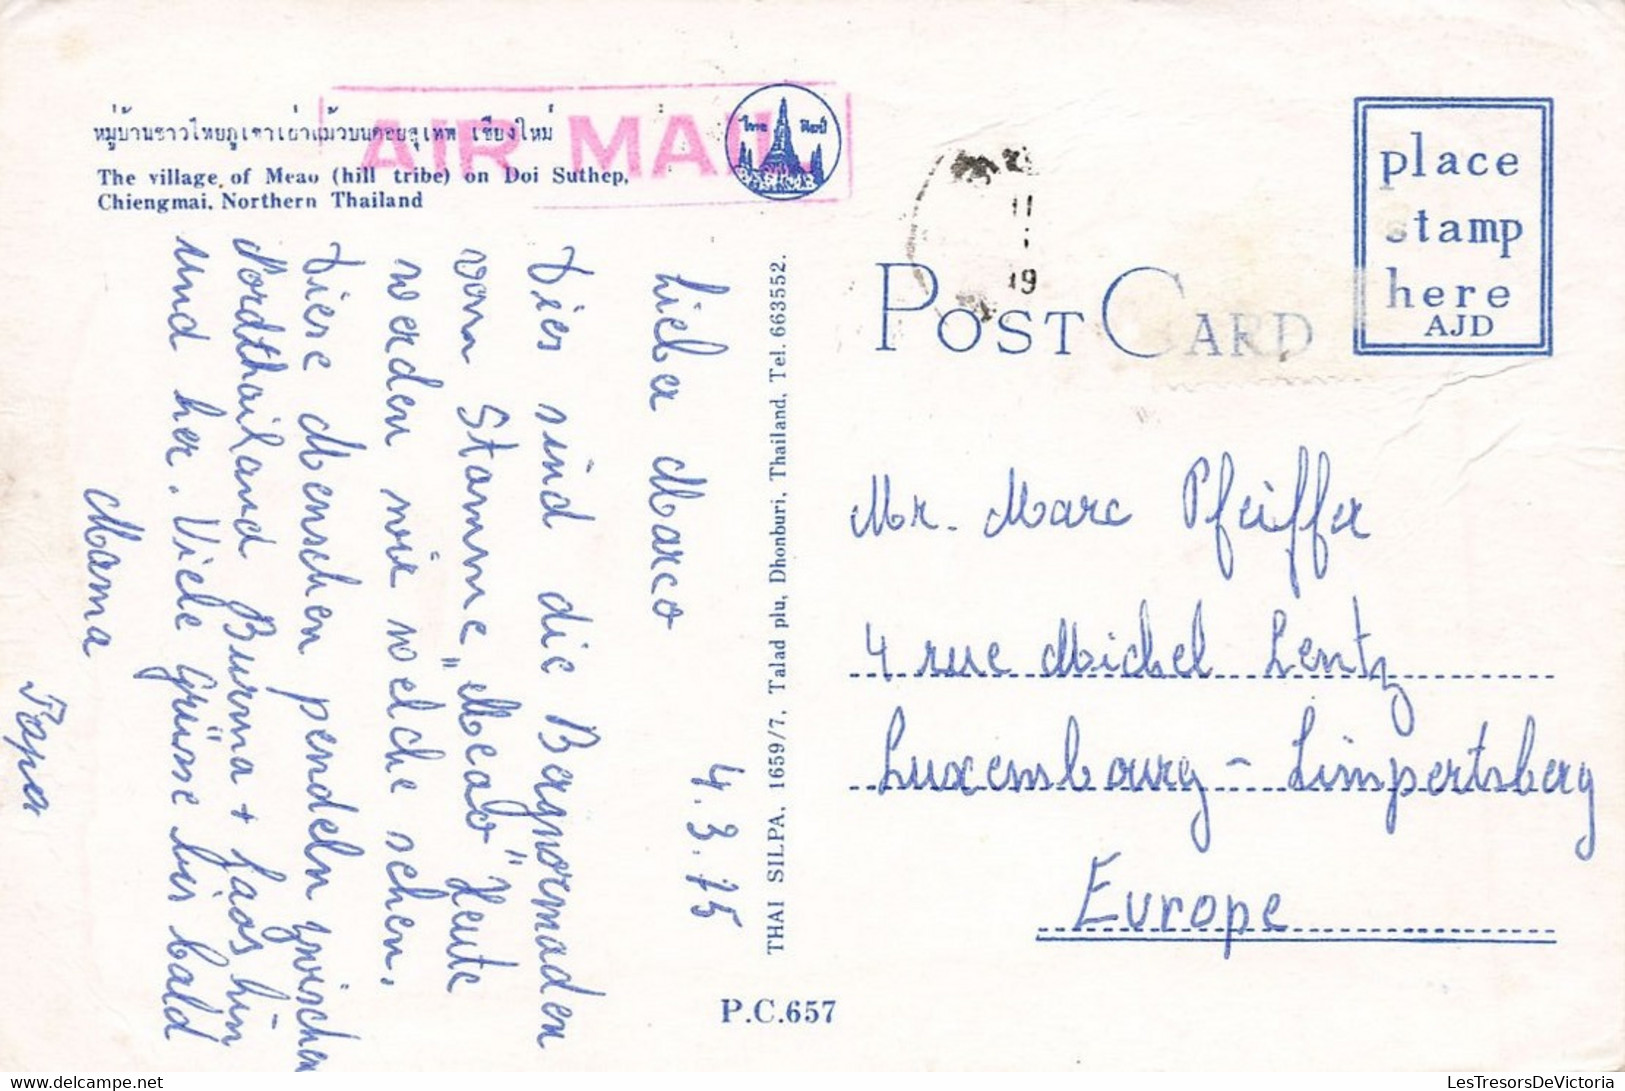 หมู่บ้านชาวไทยภูเขาเผ่าแม้วบนดอยสุเทพ เชียงใหม่
The village of Meao (hill tribe) on Doi Suthep,
Chiengmai, Northern Thailand
AIR MAIL
ไทย ศิลป์
4.3.75
Lieber Marco
Dies sind die Bergnormaden
vom Stamme "Meao" Heute
werden wir welche sehen.
Diese Menschen pendeln zwischen
Nordthailand Burma + Laos hin
und her. Viele Grüsse bis bald
Mama
Papa
THAI SILPA, 1659/7, Talad plu, Dhonburi, Thailand, Tel. 663552.
P.C.657
POST CARD
place
stamp
here
AJD
11
19
Mr. Marc Pfeiffer
4 rue Michel Lentz
Luxembourg - Limpertsberg
Europe
www.delcampe.net
LesTresorsDeVictoria